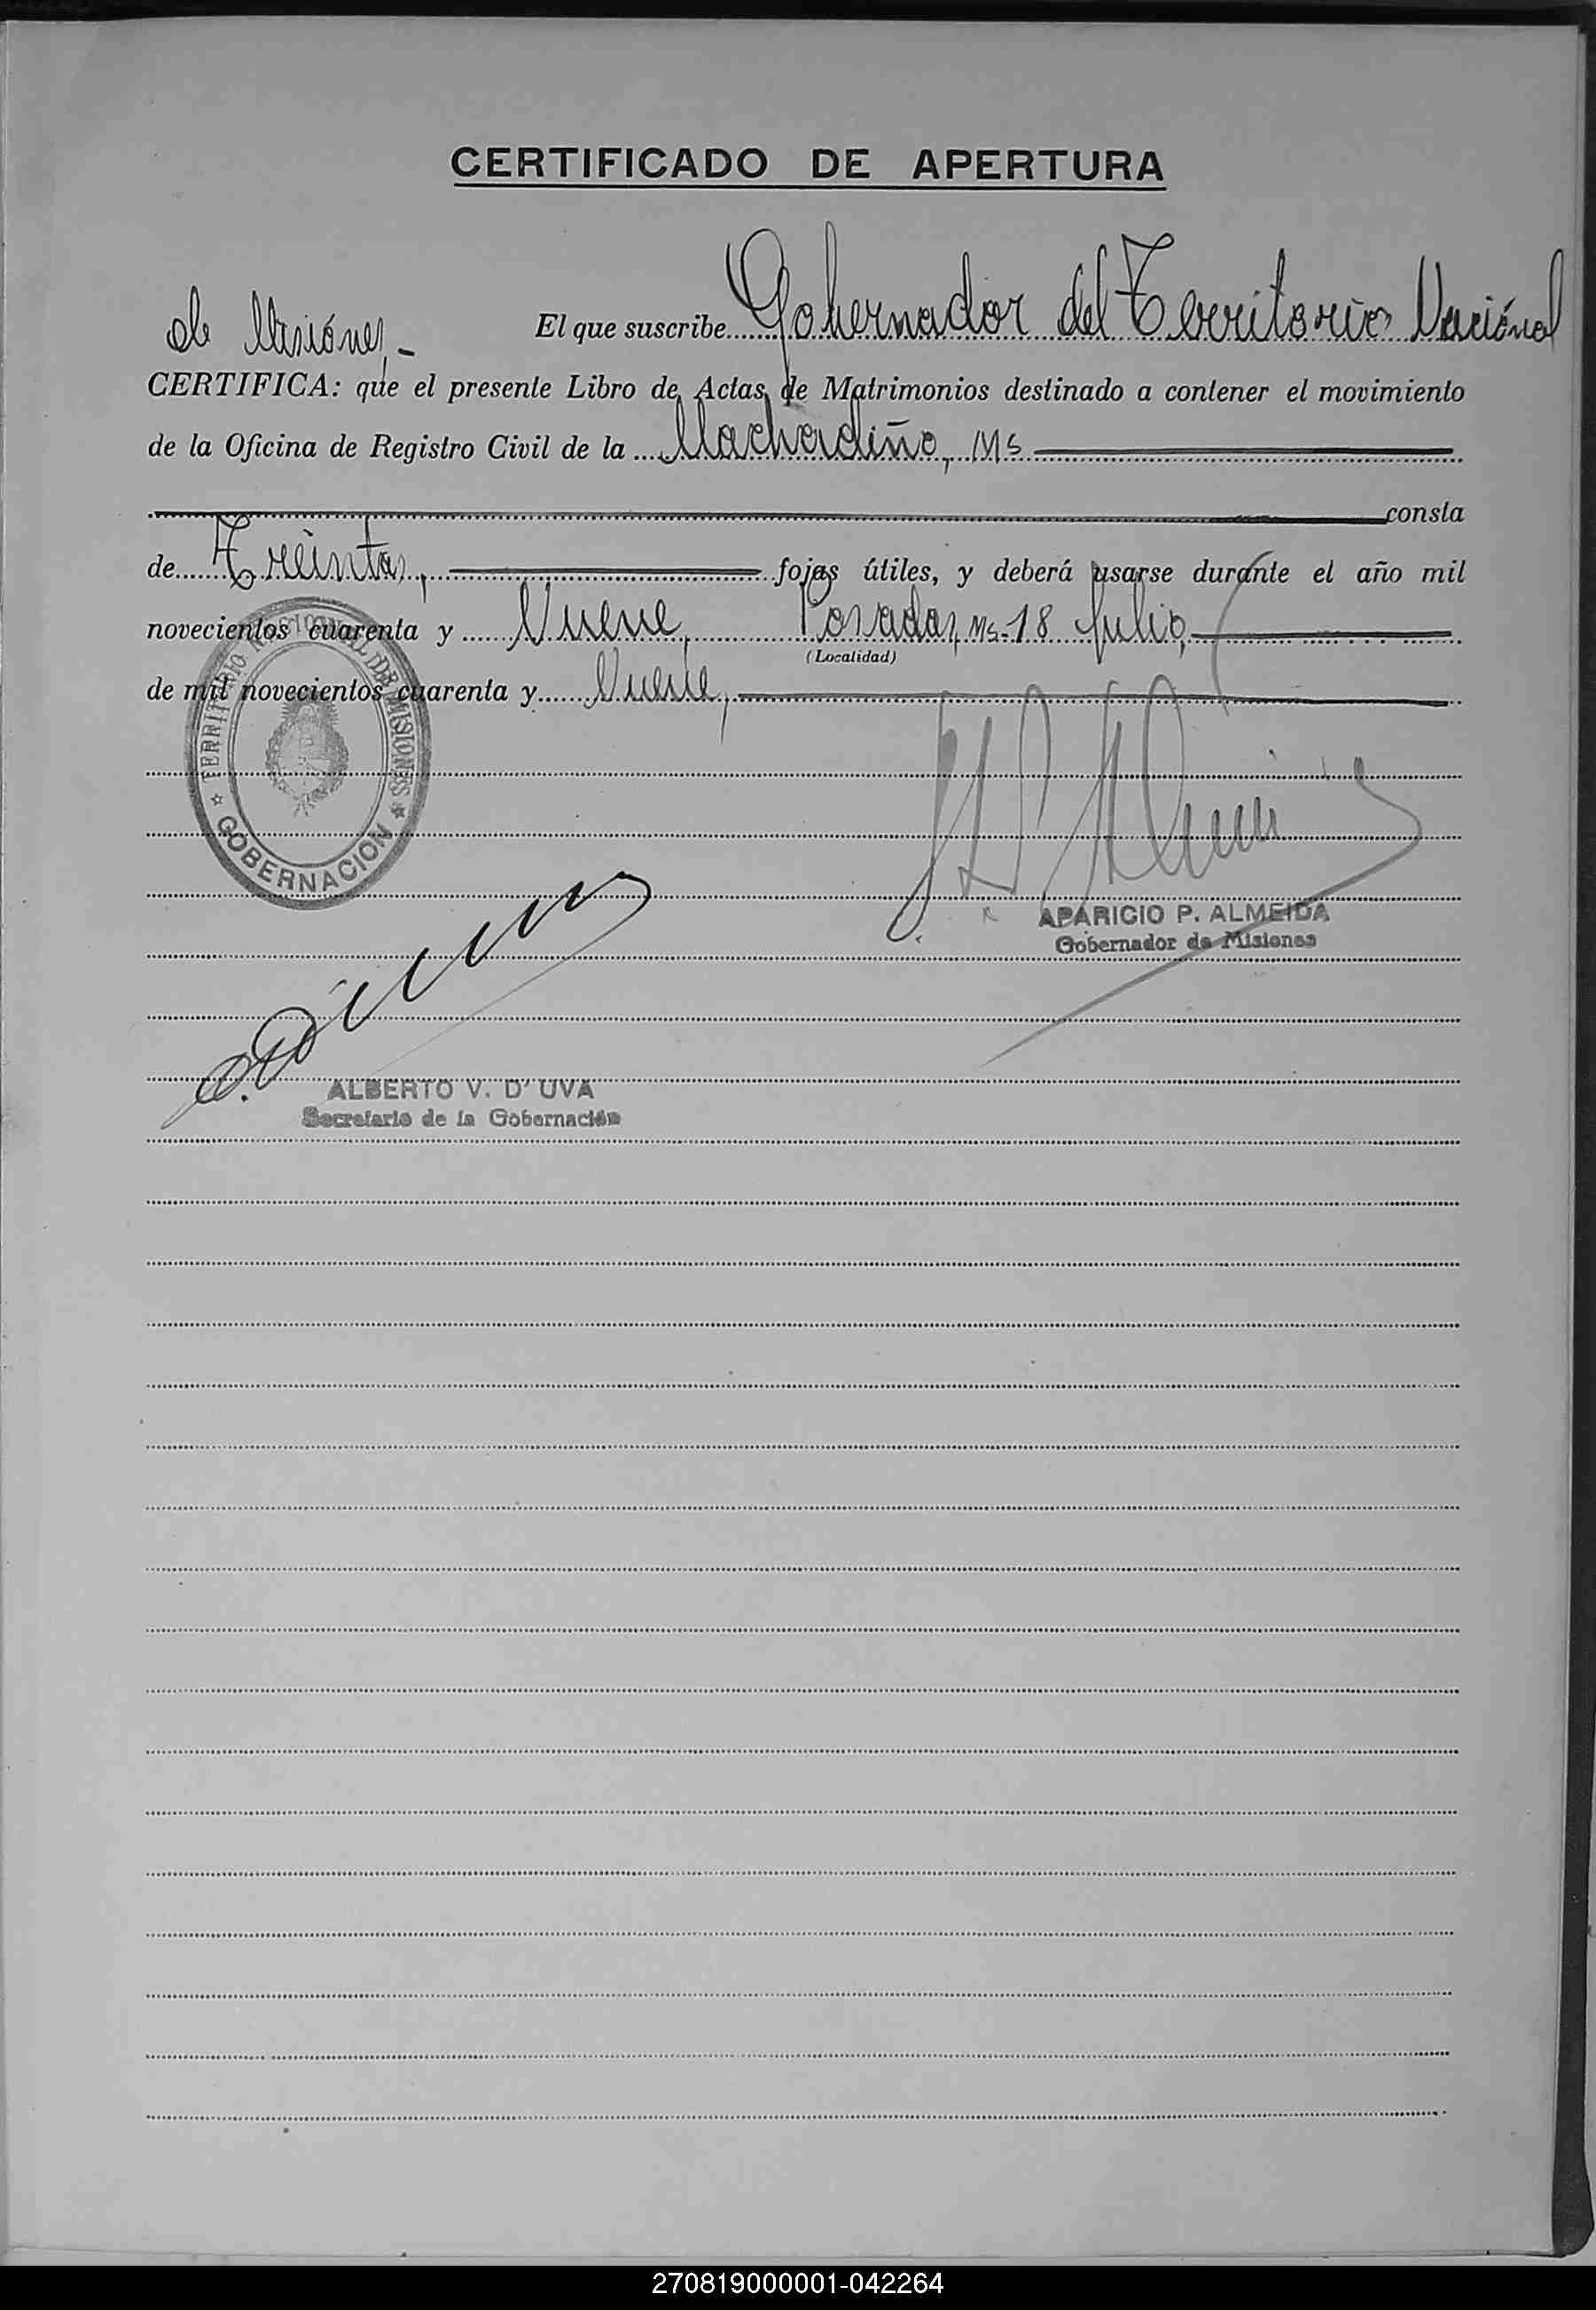 CERTIFICADO DE APERTURA
El que suscribe Gobernador del Territorio Nacional
de Misiones,-
CERTIFICA: que el presente Libro de Actas de Matrimonios destinado a contener el movimiento
de la Oficina de Registro Civil de la Machadiño, Ms
consta
de Treinta, fojas útiles, y deberá usarse durante el año mil
novecientos cuarenta y Nueve, Posadas, Ms. 18 Julio,
(Localidad)
de mil novecientos cuarenta y Nueve,
TERRITORIO NACIONAL DE MISIONES
GOBERNACION
APARICIO P. ALMEIDA
Gobernador de Misiones
ALBERTO V. D' UVA
Secretario de la Gobernación
270819000001-042264